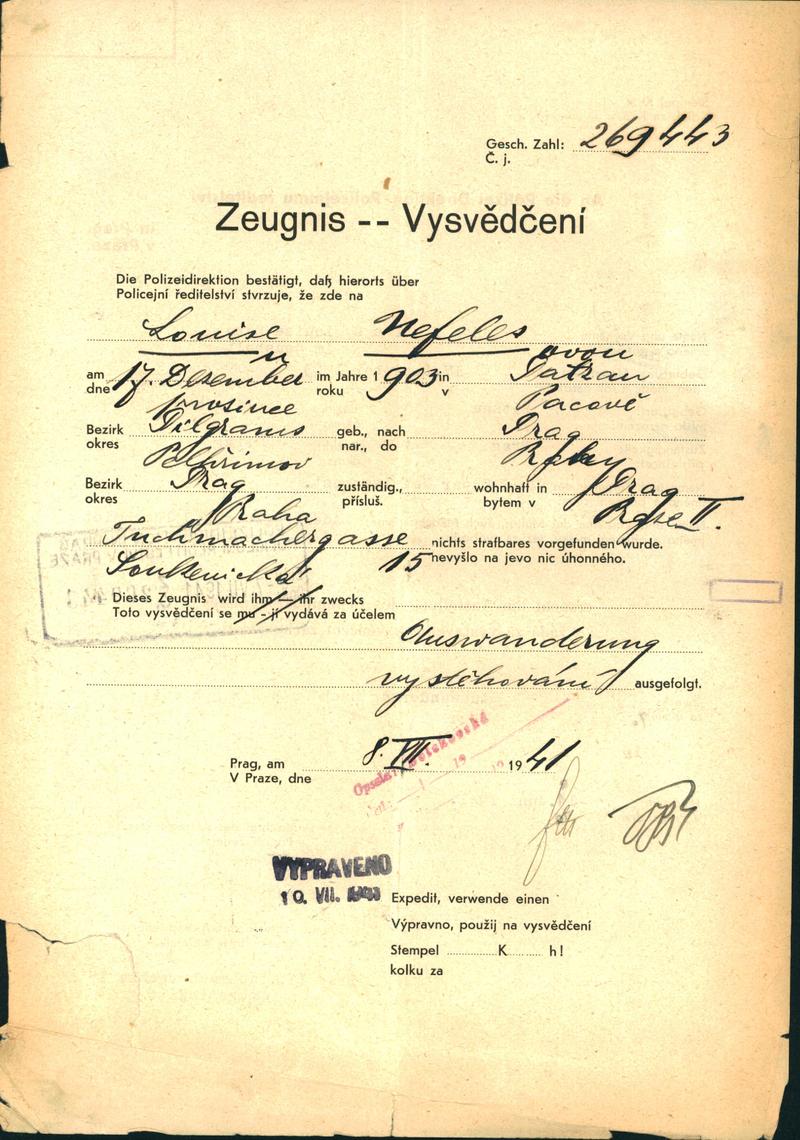 Gesch. Zahl: 269443
Č. j.
Zeugnis -- Vysvědčení
Die Polizeidirektion bestätigt, daß hierorts über
Policejní ředitelství stvrzuje, že zde na
Louise Nefeles
ovou
am 17. Dezember im Jahre 1903 in Patzau
dne prosince roku v Pacově
Bezirk Pilgrams geb., nach Prag
okres Pelhřimov nar., do Prahy
Bezirk Prag zuständig., wohnhaft in Prag
okres Praha přísluš. bytem v Praze II.
Tuchmachergasse nichts strafbares vorgefunden wurde.
Soukenická 15 nevyšlo na jevo nic úhonného.
Dieses Zeugnis wird ihm — ihr zwecks
Toto vysvědčení se mu - jí vydává za účelem
Auswanderung
vystěhování ausgefolgt.
Prag, am 8. VII. 1941
V Praze, dne
VYPRAVENO
10. VII. 1941
Expedit, verwende einen
Výpravno, použij na vysvědčení
Stempel K h!
kolku za